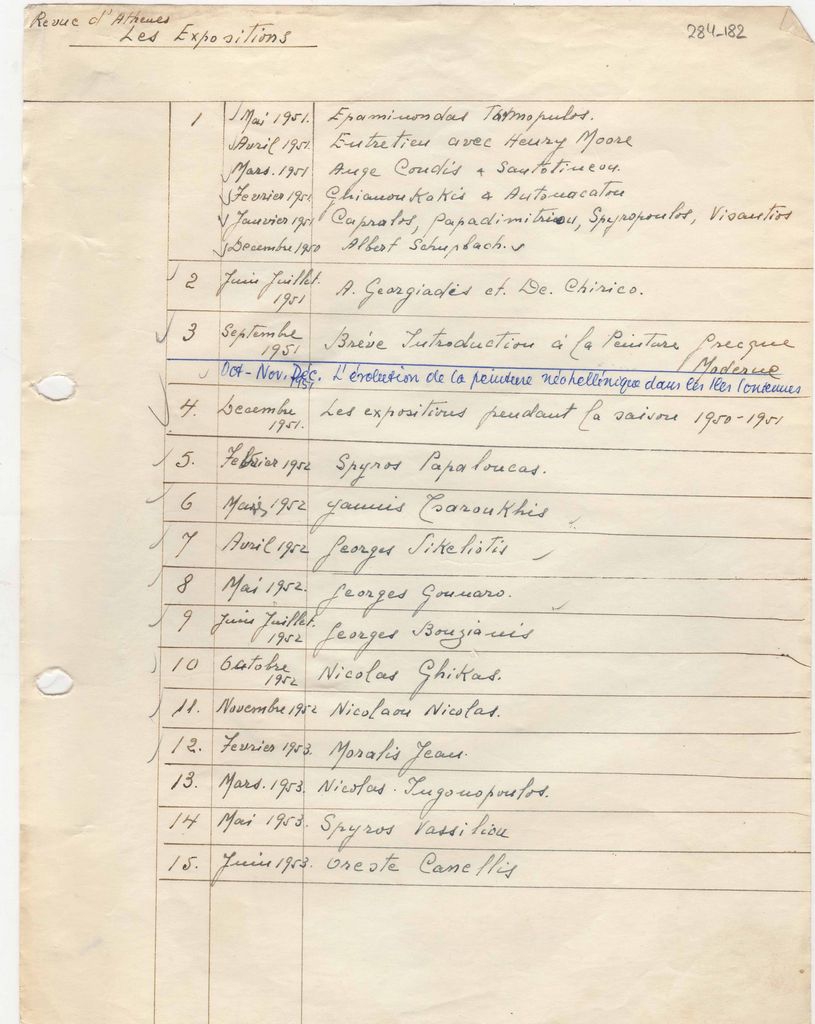 Revue d'Athenes
Les Expositions
284-182
1 Mai 1951. Epaminondas
Avril 1951. Entretien avec Henry Moore
Mars. 1951 Ange Condis &
Fevrier 1951 Ghianoukakis &
Janvier 1951 Capralos, Papadimitriou, Spyropoulos, Visantios
Decembre 1950 Albert Schupbach.
2 Juin Juillet.
1951 A. Georgiadés et. De. Chirico.
3 Septembre
1951 Brève Introduction à la Peinture Grecque
Moderne
Oct - Nov. Déc. 1951 L'évolution de la peinture néohellénique dans les Iles Ioniennes
4. Decembre
1951. Les expositions pendant la saison 1950-1951
5. Fevrier 1952 Spyros Papaloucas.
6 Mars 1952 Yannis Tsaroukhis
7 Avril 1952 Georges Sikeliotis
8 Mai 1952. Georges Gounaro.
9 Juin Juillet.
1952 Georges Bouzianis
10 Octobre
1952 Nicolas Ghikas.
11. Novembre 1952 Nicolaou Nicolas.
12. Fevrier 1953. Moralis Jean.
13. Mars. 1953. Nicolas. Ingonopoulos.
14 Mai 1953. Spyros Vassiliou
15. Juin 1953. Oreste Canellis